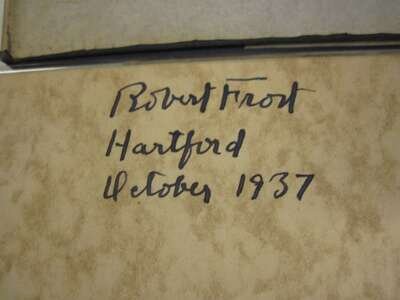 Robert Frost
Hartford
October 1937